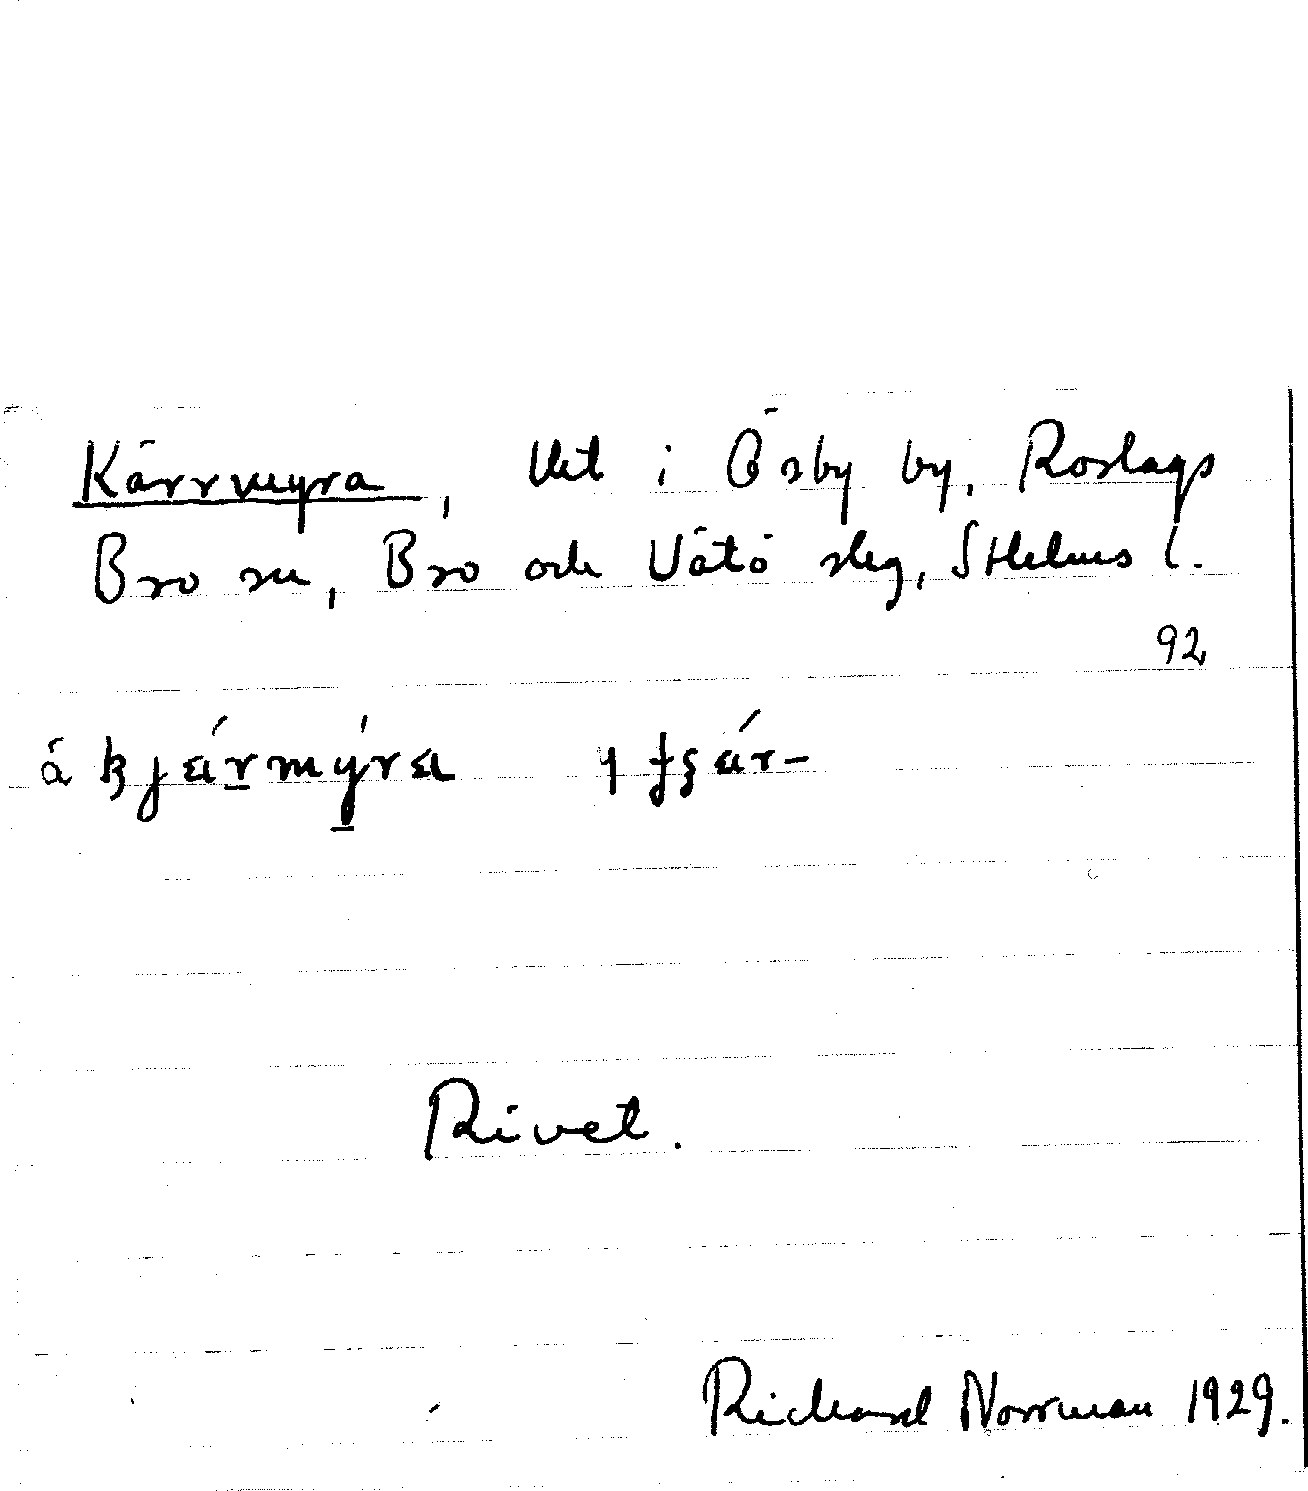 Kärrmyra, tlt i Ösby by, Roslags
Bro sn, Bro och Vätö sklg, Sthlms l.
92
Rivet.
Richard Norrman 1929.